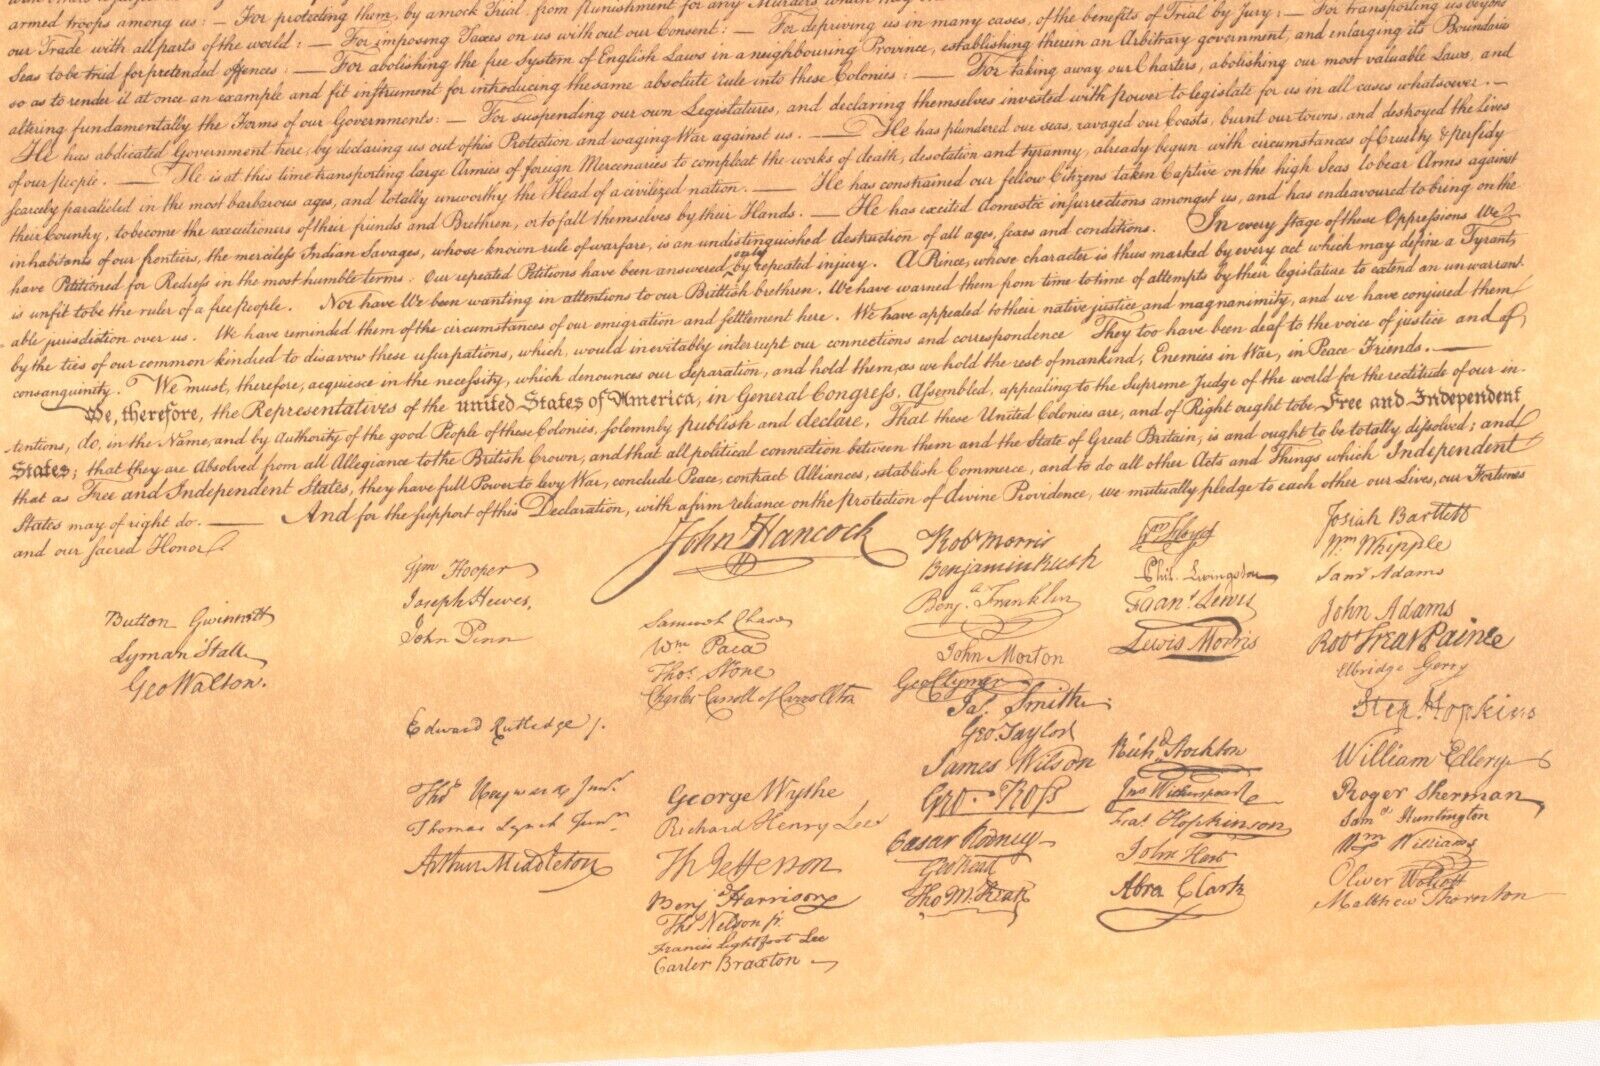 armed troops among us : — For protecting them, by a mock Trial from Punishment for any Murders which they
our Trade with all parts of the world : — For imposing Taxes on us without our Consent : — For depriving us in many cases, of the benefits of Trial by Jury : — For transporting us beyond
Seas to be tried for pretended offences : — For abolishing the free System of English Laws in a neighbouring Province, establishing therein an Arbitrary government, and enlarging its Boundaries
so as to render it at once an example and fit instrument for introducing the same absolute rule into these Colonies : — For taking away our Charters, abolishing our most valuable Laws, and
altering fundamentally the Forms of our Governments : — For suspending our own Legislatures, and declaring themselves invested with Power to legislate for us in all cases whatsoever . —
He has abdicated Government here, by declaring us out of his Protection and waging War against us . — He has plundered our seas, ravaged our Coasts, burnt our towns, and destroyed the lives
of our People . — He is at this time transporting large Armies of foreign Mercenaries to compleat the works of death, desolation and tyranny, already begun with circumstances of Cruelty & Perfidy
scarcely paralleled in the most barbarous ages, and totally unworthy the Head of a civilized nation . — He has constrained our fellow Citizens taken Captive on the high Seas to bear Arms against
their Country, to become the executioners of their friends and Brethren, or to fall themselves by their Hands . — He has excited domestic insurrections amongst us, and has endeavoured to bring on the
inhabitants of our frontiers, the merciless Indian Savages, whose known rule of warfare, is an undistinguished destruction of all ages, sexes and conditions . In every stage of these Oppressions We
have Petitioned for Redress in the most humble terms . Our repeated Petitions have been answered only by repeated injury . A Prince, whose character is thus marked by every act which may define a Tyrant,
is unfit to be the ruler of a free People . Nor have We been wanting in attentions to our Brittish brethren . We have warned them from time to time of attempts by their legislature to extend an unwarrant-
able jurisdiction over us . We have reminded them of the circumstances of our emigration and settlement here . We have appealed to their native justice and magnanimity, and we have conjured them
by the ties of our common kindred to disavow these usurpations, which, would inevitably interrupt our connections and correspondence They too have been deaf to the voice of justice and of
consanguinity . We must, therefore, acquiesce in the necessity, which denounces our Separation, and hold them, as we hold the rest of mankind, Enemies in War, in Peace Friends . —
We, therefore, the Representatives of the united States of America, in General Congress, Assembled, appealing to the Supreme Judge of the world for the rectitude of our in-
tentions, do, in the Name, and by Authority of the good People of these Colonies, solemnly publish and declare, That these United Colonies are, and of Right ought to be Free and Independent
States; that they are Absolved from all Allegiance to the British Crown, and that all political connection between them and the State of Great Britain, is and ought to be totally dissolved; and
that as Free and Independent States, they have full Power to levy War, conclude Peace, contract Alliances, establish Commerce, and to do all other Acts and Things which Independent
States may of right do . — And for the support of this Declaration, with a firm reliance on the Protection of divine Providence, we mutually pledge to each other our Lives, our Fortunes
and our sacred Honor
Button Gwinnett
Lyman Hall
Geo Walton.
Wm Hooper
Joseph Hewes,
John Penn
Edward Rutledge /.
Thos Heyward Junr.
Thomas Lynch Junr
Arthur Middleton
John Hancock
Samuel Chase
Wm Paca
Thos Stone
Charles Carroll of Carrollton
George Wythe
Richard Henry Lee
Th Jefferson
Benj Harrison
Thos Nelson jr.
Francis Lightfoot Lee
Carter Braxton
Robt Morris
Benjamin Rush
Benja. Franklin
John Morton
Geo Clymer
Jas. Smith
Geo. Taylor
James Wilson
Geo. Ross
Caesar Rodney
Geo Read
Tho M:Kean
Wm Floyd
Phil. Livingston
Frans. Lewis
Lewis Morris
Richd. Stockton
Jno Witherspoon
Fras. Hopkinson
John Hart
Abra Clark
Josiah Bartlett
Wm Whipple
Saml Adams
John Adams
Robt Treat Paine
Elbridge Gerry
Step. Hopkins
William Ellery
Roger Sherman
Samel Huntington
Wm Williams
Oliver Wolcott
Matthew Thornton